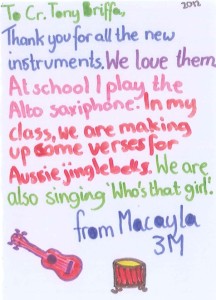 2012
To Cr. Tony Briffa,
Thank you for all the new
instruments. We love them
At school I play the
Alto saxiphone. In my
class, we are making
up some verses for
Aussie jinglebells. We are
also singing 'Who's that girl'.
from Macayla
3M